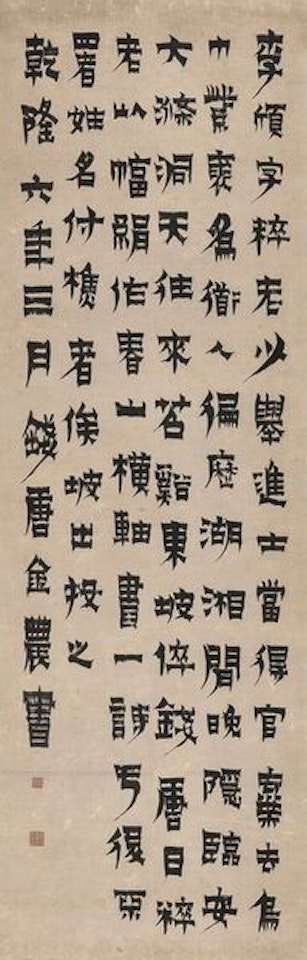 李頎字粹老以舉進士當得官棄去烏
巾裘為衟人徧歷湖湘間晚隱臨安
大滌洞天往來苕谿東坡倅錢唐日粹
老以幅絹作春山橫軸書一詩丂後不
署姓名付樵者俟坡出投之
乾隆六年三月錢唐金農書